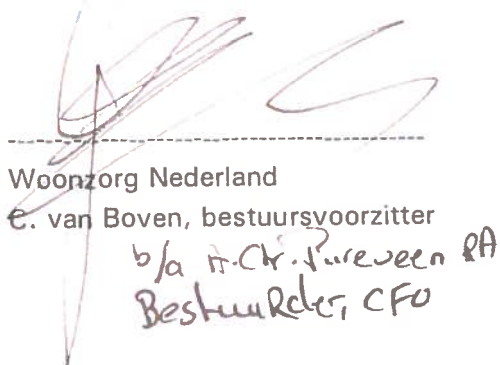 Woonzorg Nederland
C. van Boven, bestuursvoorzitter
b/a H. Chr. Pureveen RA
Bestuurder, CFO